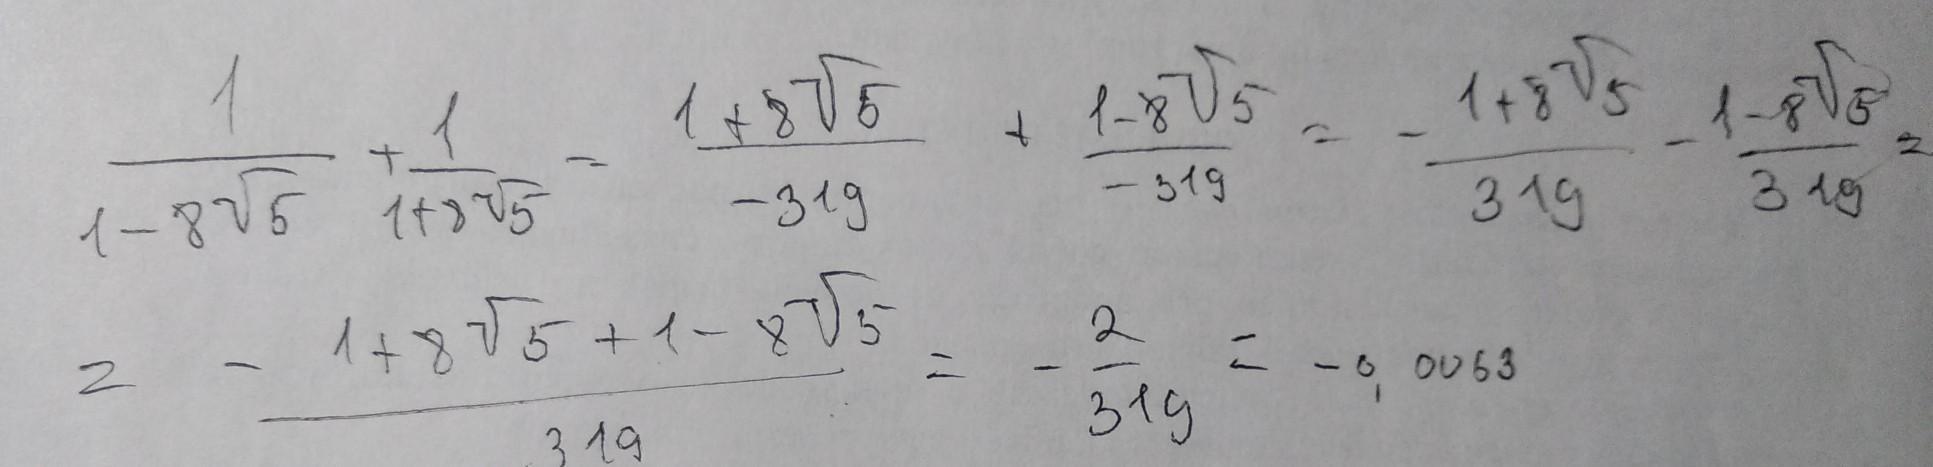 \frac{1}{1-8\sqrt{5}} + \frac{1}{1+8\sqrt{5}} = \frac{1+8\sqrt{5}}{-319} + \frac{1-8\sqrt{5}}{-319} = -\frac{1+8\sqrt{5}}{319} - \frac{1-8\sqrt{5}}{319} =
= -\frac{1+8\sqrt{5}+1-8\sqrt{5}}{319} = -\frac{2}{319} = -0,0063